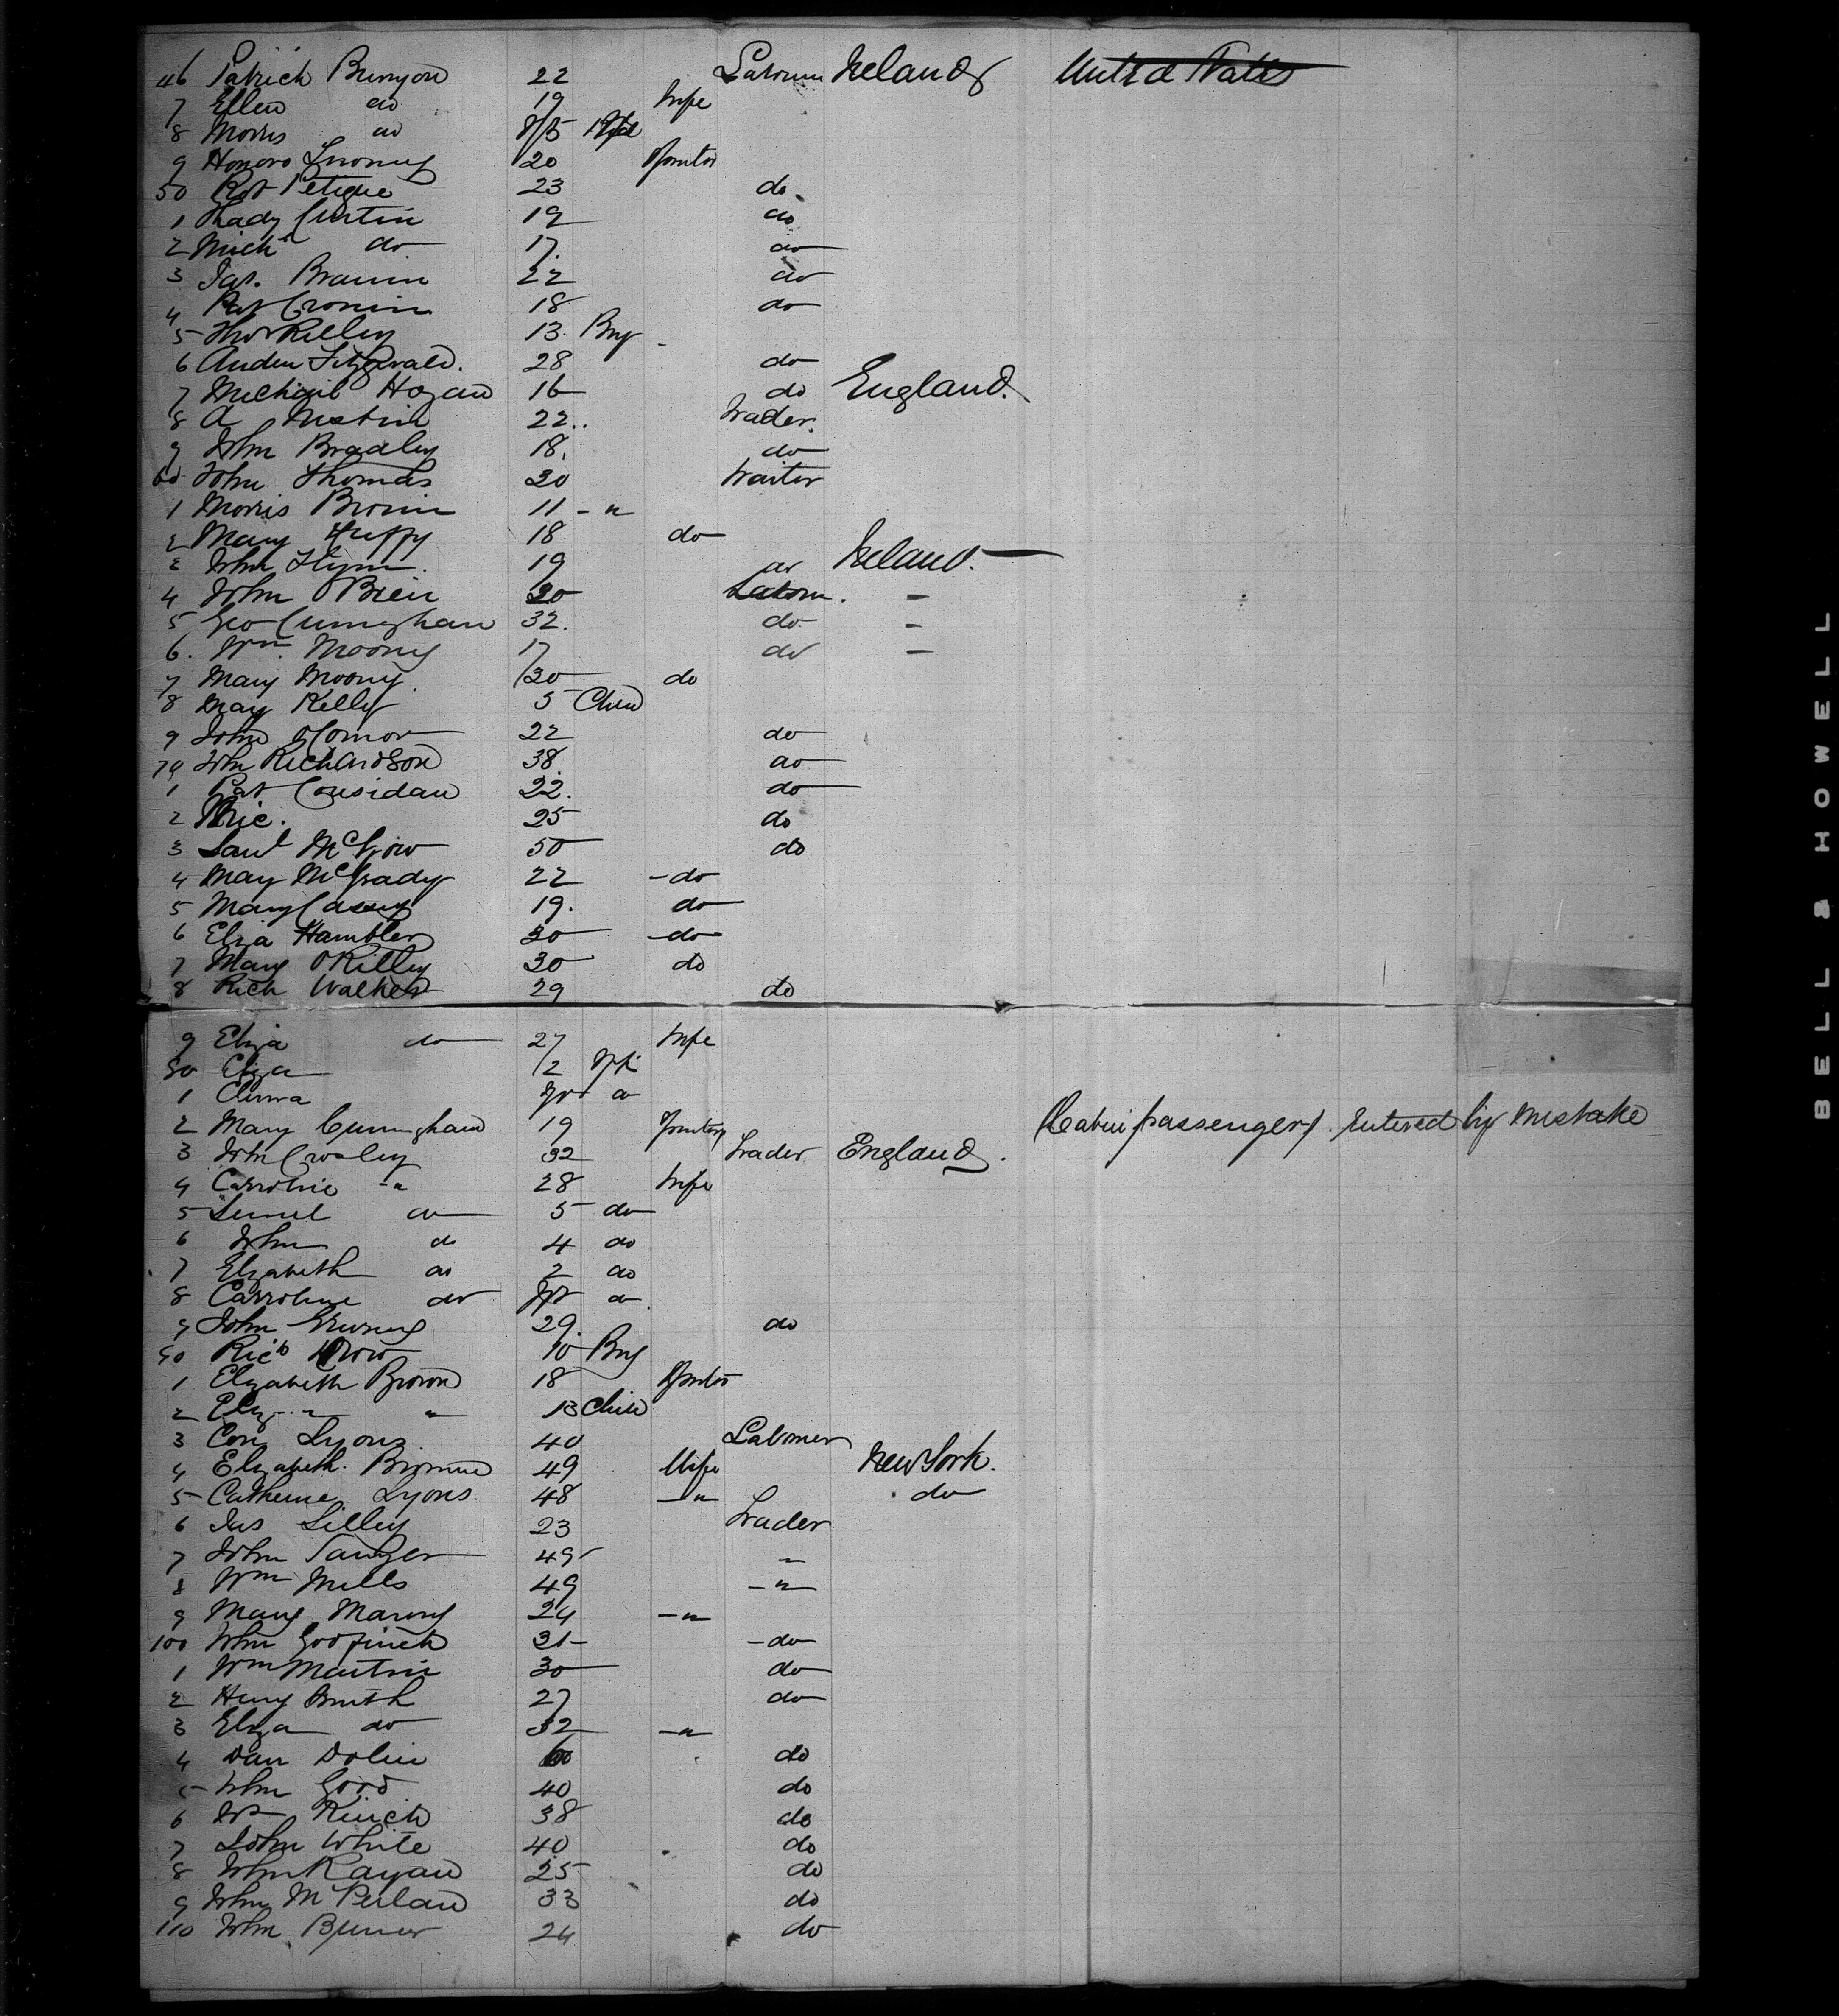 46 Patrick Bunyon 22 Labourer Ireland United States
7 Ellen do 19 Wife
8 Morris do Inft
9 Honoro 20 Spinster
50 Pat Petigue 23 do
1 Thady Curtin 19 do
2 Mich do 17 do
3 Jas. Braunn 22 do
4 Pat Cronin 18 do
5 Thos Kelley 13 Boy
6 Fitzgerald. 28 do
7 Michael Hogan 16 do England.
8 A Martin 22 Trader.
9 John Bradley 18. do
60 John Thomas 20 Waiter
1 Morris Brown 11 - "
2 Mary Huffy 18 do
3 John Flynn. 19 do Ireland.
4 John OBrien 30 Labour. -
5 Geo Cuningham 32. do -
6. Wm. Moony 17 do -
7 Mary Moony 20 do
8 Mary Kelly 5 Child
9 John OConnor 22 do
70 John Richardson 38 do
1 Pat Considan 22. do
2 Mic. 25 do
3 50 do
4 Mary McGrady 22 - do
5 Mary Casey 19. do
6 Eliza Hambler 30 - do
7 Mary OKilley 30 do
8 Rich Walker 29 do
9 Eliza do 27 Wife
80 Eliza /2
1
2 Mary Cunningham 19 Spinster (Cabin passengers). Entered by Mistake
3 John Crosley 32 Trader England.
4 Carroline - " 28 Wife
5 do 5 do
6 John do 4 do
7 Elizabeth do 2 do
8 Carroline do
9 John 29. do
90 Ricd 10 Boy
1 Elizabeth Brown 18 Spinster
2 Eliz - " " 13 Child
3 Con Lyons. 40 Labourer
4 Elizabeth. Browne 49 Wife New York.
5 Catherine Lyons. 48 - " do
6 Jas Lilley 23 Trader
7 John Sawyer 49 "
8 Wm Mills 49 - "
9 Mary 24 - "
100 John Godfinch 31 - do
1 Wm Martin 30 do
2 Henry Smith 27 do
3 Eliza do 32 - "
4 Dan Dolin 60 do
5 John Good 40 do
6 Kinch 38 do
7 John White 40 do
8 John Kayan 25 do
9 John McPerlan 33 do
110 John 24 do
BELL & HOWELL